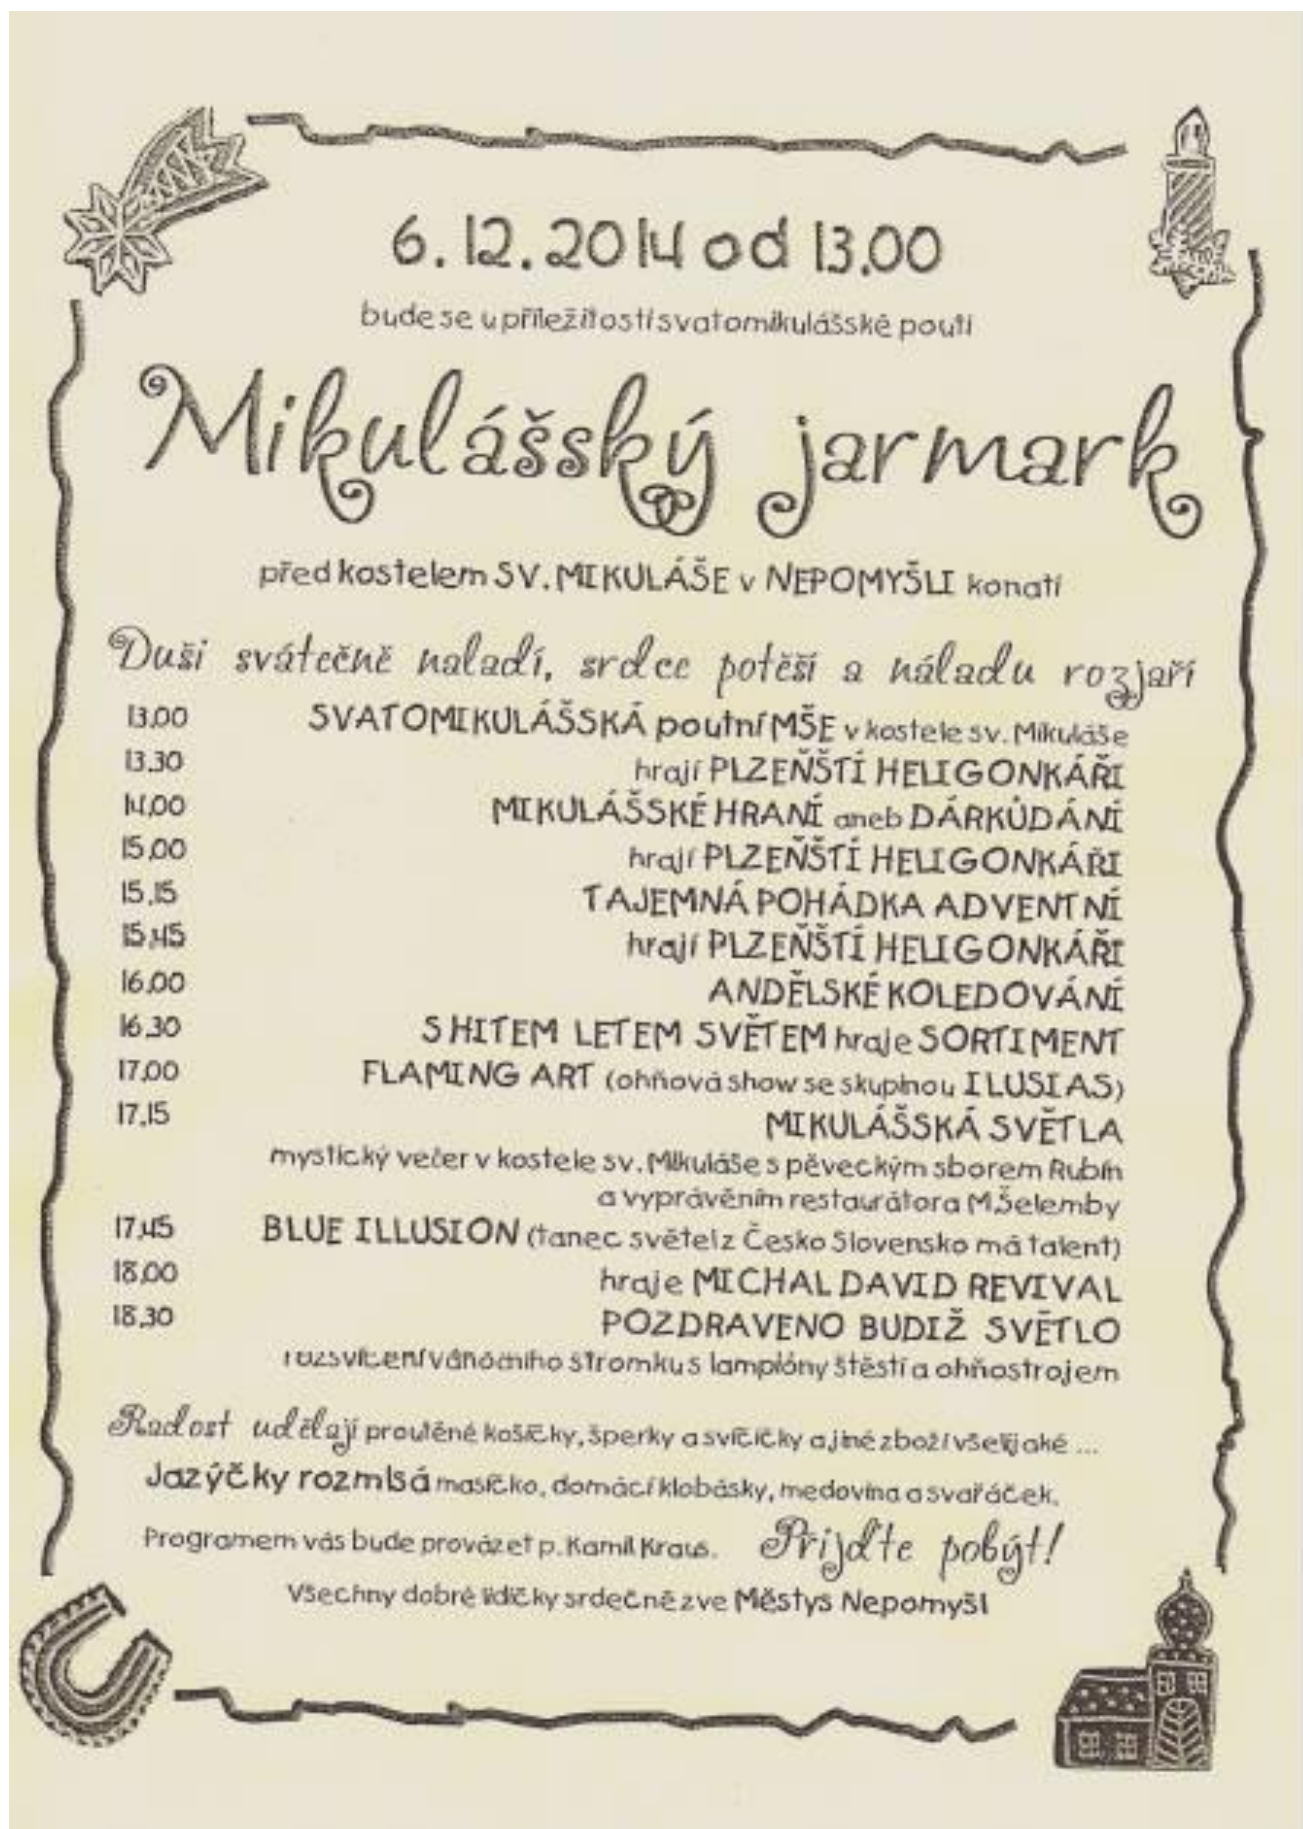 6.12.2014 od 13.00
bude se u příležitosti svatomikulášské pouti
Mikulášský jarmark
před kostelem SV. MIKULÁŠE v NEPOMYŠLI konati
Duši svátečně naladí, srdce potěší a náladu rozjaří
13.00 SVATOMIKULÁŠSKÁ poutní MŠE v kostele sv. Mikuláše
13.30 hrají PLZEŇŠTÍ HELIGONKÁŘI
14.00 MIKULÁŠSKÉ HRANÍ aneb DÁRKŮDÁNÍ
15.00 hrají PLZEŇŠTÍ HELIGONKÁŘI
15.15 TAJEMNÁ POHÁDKA ADVENTNÍ
15.45 hrají PLZEŇŠTÍ HELIGONKÁŘI
16.00 ANDĚLSKÉ KOLEDOVÁNÍ
16.30 S HITEM LETEM SVĚTEM hraje SORTIMENT
17.00 FLAMING ART (ohňová show se skupinou ILUSIAS)
17.15 MIKULÁŠSKÁ SVĚTLA
mystický večer v kostele sv. Mikuláše s pěveckým sborem Rubín
a vyprávěním restaurátora M.Šelemby
17.45 BLUE ILLUSION (tanec světel z Česko Slovensko má talent)
18.00 hraje MICHAL DAVID REVIVAL
18.30 POZDRAVENO BUDIŽ SVĚTLO
rozsvícení vánočního stromku s lampióny štěstí a ohňostrojem
Radost udělají proutěné košíčky, šperky a svíčičky a jiné zboží všelijaké ...
Jazýčky rozmlsá masíčko, domácí klobásky, medovina a svařáček.
Programem vás bude provázet p. Kamil Kraus. Přijďte pobýt!
Všechny dobré lidičky srdečně zve Městys Nepomyšl